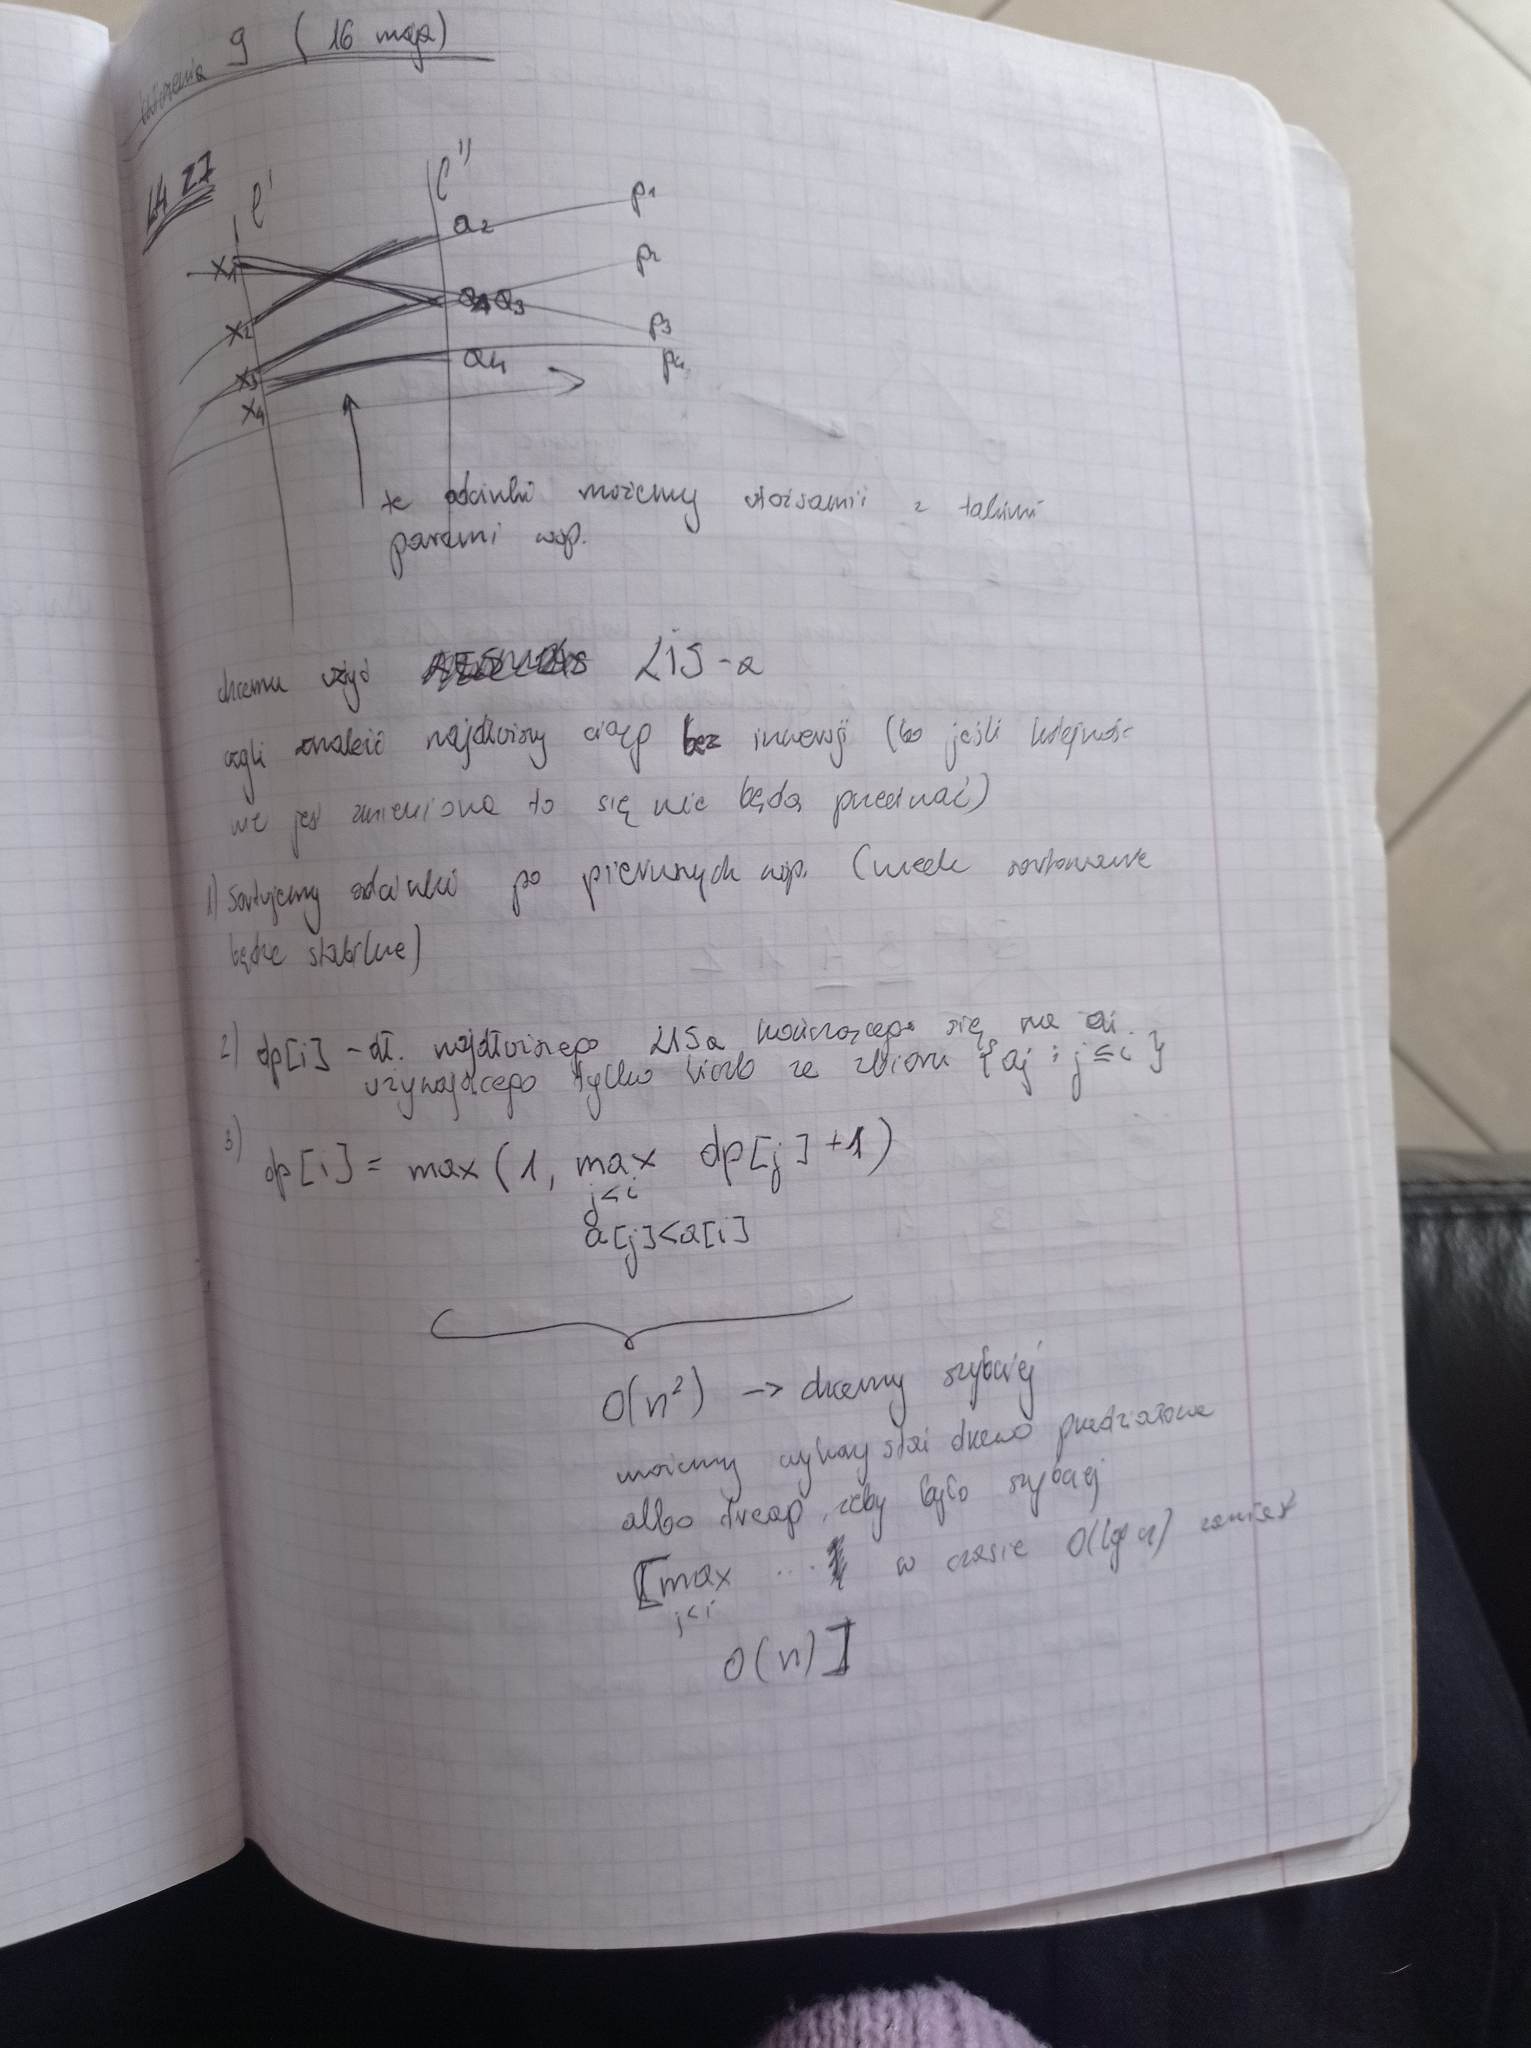 Ćwiczenia 9 (16 maja)
L4 Z7
l' l''
x1 a2 p1
x2 a3 p2
x3 a4 p3
x4 p4
te odcinki możemy utożsamić z takimi
parami wsp.
chcemy użyć LIS-a
czyli znaleźć najdłuższy ciąg bez inwersji (bo jeśli kolejność
nie jest zmieniona to się nie będą przecinać)
1) Sortujemy odcinki po pierwszych wsp. (niech sortowanie
będzie stabilne)
2) dp[i] - dł. najdłuższego LISa kończącego się na ai.
używającego tylko liczb ze zbioru {aj : j≤i}
3) dp[i] = max(1, max dp[j]+1)
j<i
a[j]<a[i]
O(n²) -> chcemy szybciej
możemy wykorzystać drzewo przedziałowe
albo treap, żeby było szybciej
[max ... w czasie O(log n) zamiast
j<i
O(n)]